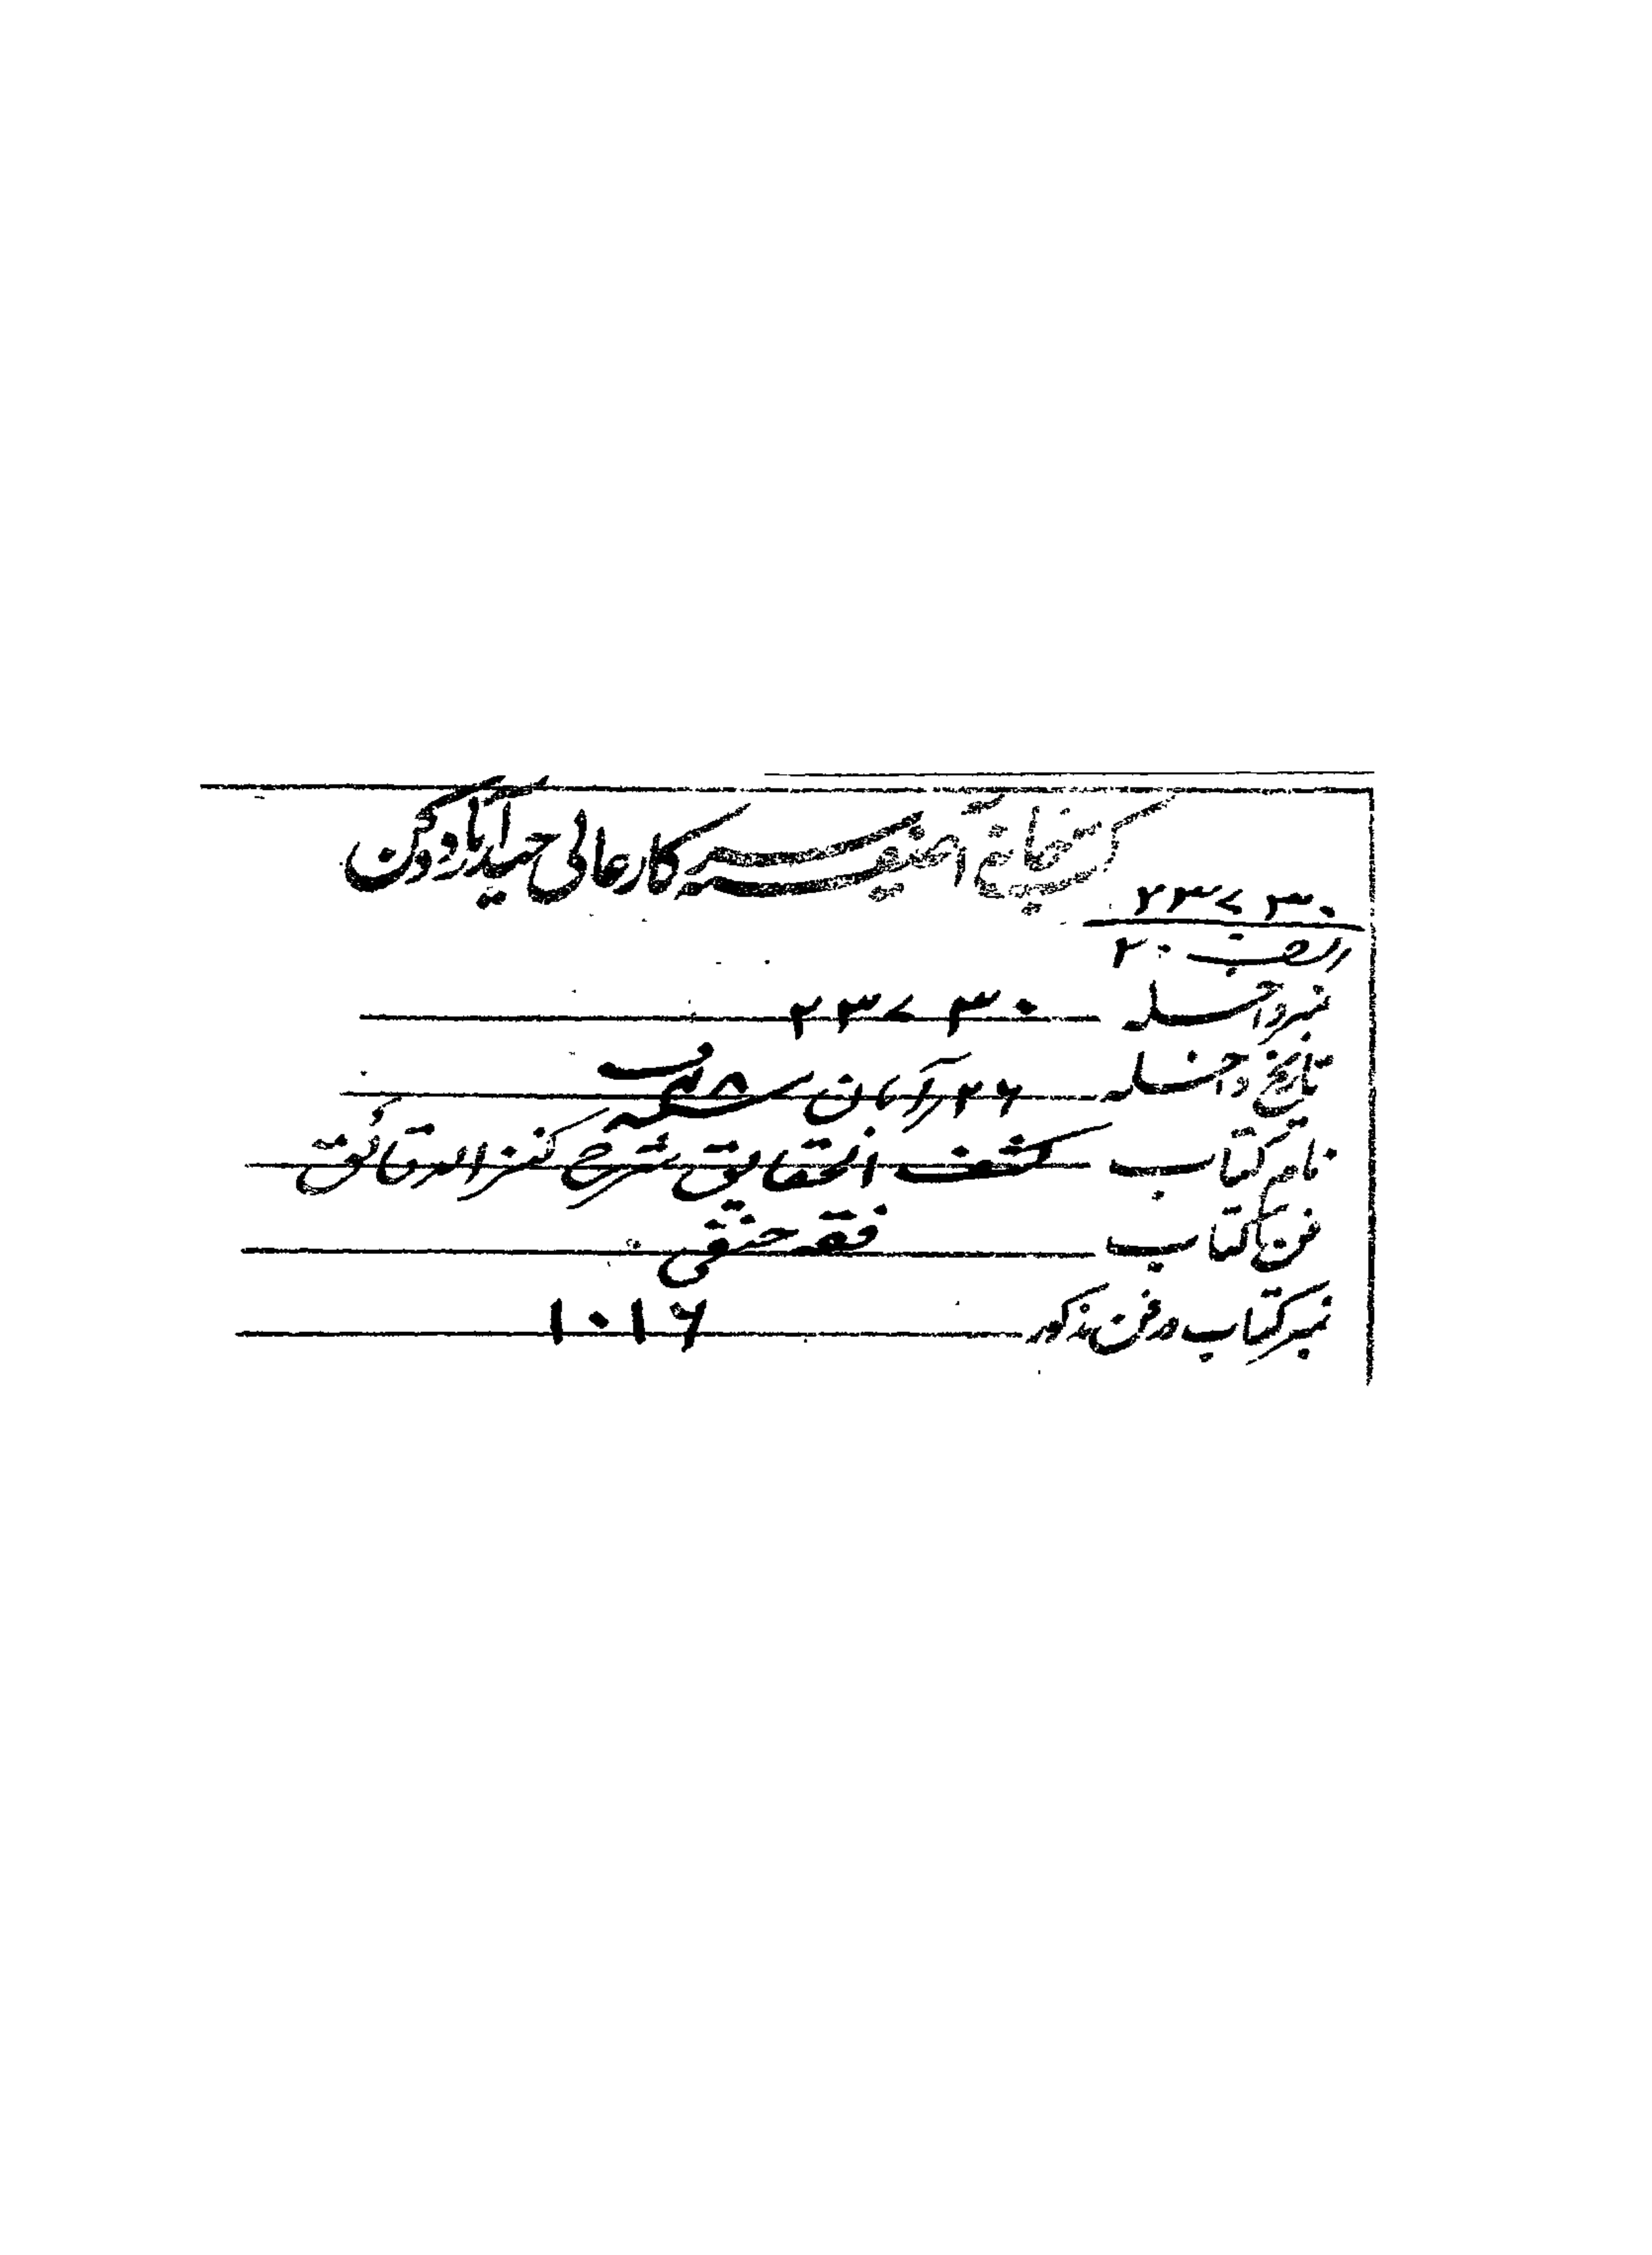 کتبخانۂ آصفیہ سرکار عالی حیدرآباد دکن
۲۳۷۳۰
الف ۲۰
نمبر داخلہ ۲۳۷۳۰
تاریخ داخلہ ۲۶ آبان
نام کتاب کشف الحقایق شرح کنز الدقائق
فن کتاب فقہ حنفی
نمبر کتاب در فن مذکور ۱۰۱۶